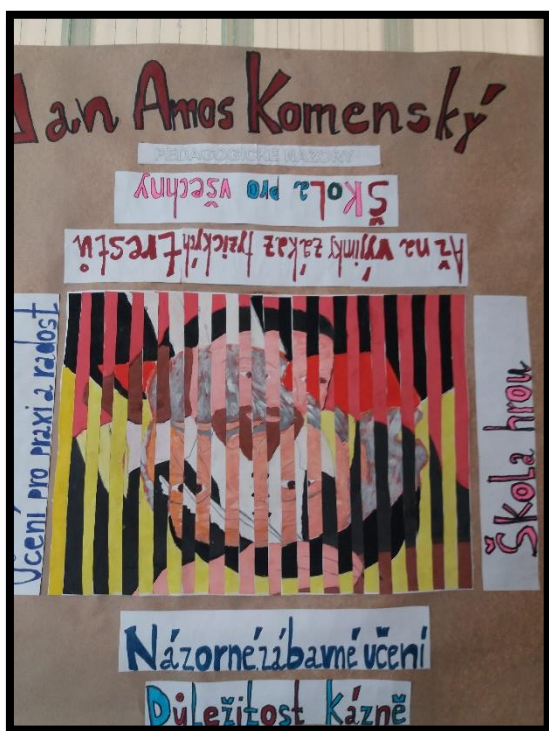 Jan Amos Komenský
PEDAGOGICKÉ NÁZORY
Škola pro všechny
Až na výjimky zákaz fyzických trestů
Učení pro praxi a radost
Škola hrou
Názorné, zábavné učení
Důležitost kázně